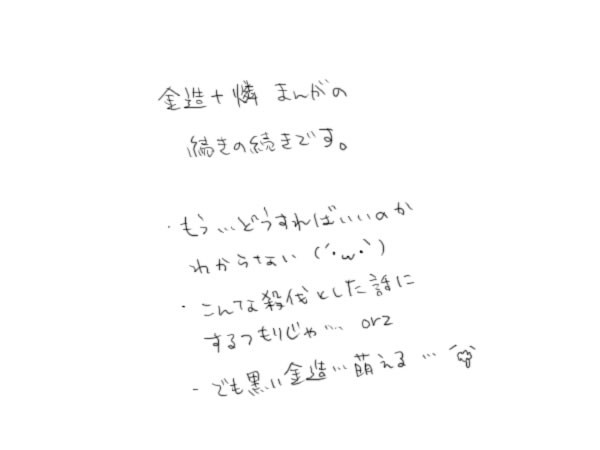 金造+燐 まんがの
続きの続きです。
・もう…どうすればいいのか
わからない(´・ω・`)
・こんな殺伐とした話に
するつもりじゃ… orz
・でも黒い金造…萌える…